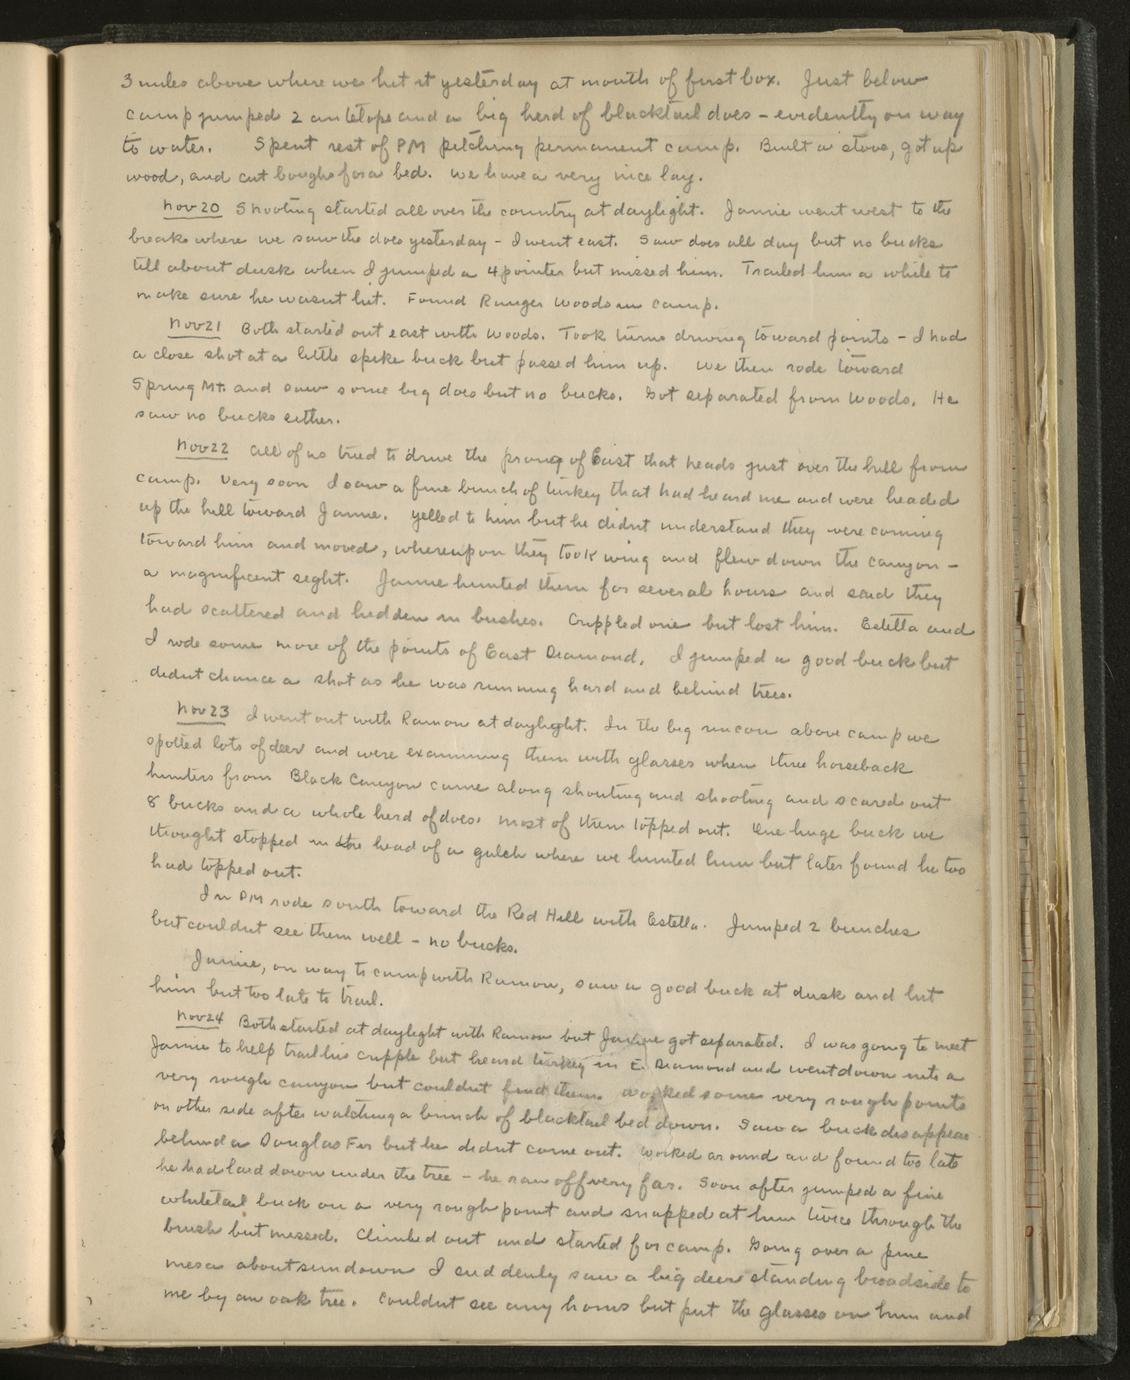 3 miles above where we hit it yesterday at mouth of first box. Just below
camp jumped 2 antelope and a big herd of blacktail does – evidently on way
to water. Spent rest of PM pitching permanent camp. Built a stove, got up
wood, and cut boughs for a bed. We have a very nice lay.
Nov 20 Shooting started all over the country at daylight. Jamie went west to the
breaks where we saw the does yesterday – I went east. Saw does all day but no bucks
till about dusk when I jumped a 4 pointer but missed him. Trailed him a while to
make sure he wasnt hit. Found Ranger Woods in camp.
Nov 21 Both started out east with Woods. Took turns driving toward points – I had
a close shot at a little spike buck but passed him up. We then rode toward
Spring Mt. and saw some big does but no bucks. Got separated from Woods. He
saw no bucks either.
Nov 22 All of us tried to drive the prong of East that heads just over the hill from
camp. Very soon I saw a fine bunch of turkey that had heard me and were headed
up the hill toward Jamie. Yelled to him but he didnt understand they were coming
toward him and moved, whereupon they took wing and flew down the canyon –
a magnificent sight. Jamie hunted them for several hours and said they
had scattered and hidden in bushes. Crippled one but lost him. Estella and
I rode some more of the points of East Diamond. I jumped a good buck but
didnt chance a shot as he was running hard and behind trees.
Nov 23 I went out with Ramon at daylight. In the big rincon above camp we
spotted lots of deer and were examining them with glasses when three horseback
hunters from Black Canyon came along shouting and shooting and scared out
8 bucks and a whole herd of does. Most of them topped out. One huge buck we
thought stopped in the head of a gulch where we hunted him but later found he too
had topped out.
In PM rode south toward the Red Hill with Estella. Jumped 2 bunches
but couldnt see them well – no bucks.
Jamie, on way to camp with Ramon, saw a good buck at dusk and hit
him but too late to trail.
Nov 24 Both started at daylight with Ramon but Jamie got separated. I was going to meet
Jamie to help trail his cripple but heard turkey in E. Diamond and went down into a
very rough canyon but couldnt find them. Worked some very rough points
on other side after watching a bunch of blacktail bed down. Saw a buck disappear
behind a Douglas Fir but he didnt come out. Worked around and found too late
he had laid down under the tree – he ran off very far. Soon after jumped a fine
whitetail buck on a very rough point and snapped at him twice through the
brush but missed. Climbed out and started for camp. Going over a pine
mesa about sundown I suddenly saw a big deer standing broadside to
me by an oak tree. Couldnt see any horns but put the glasses on him and